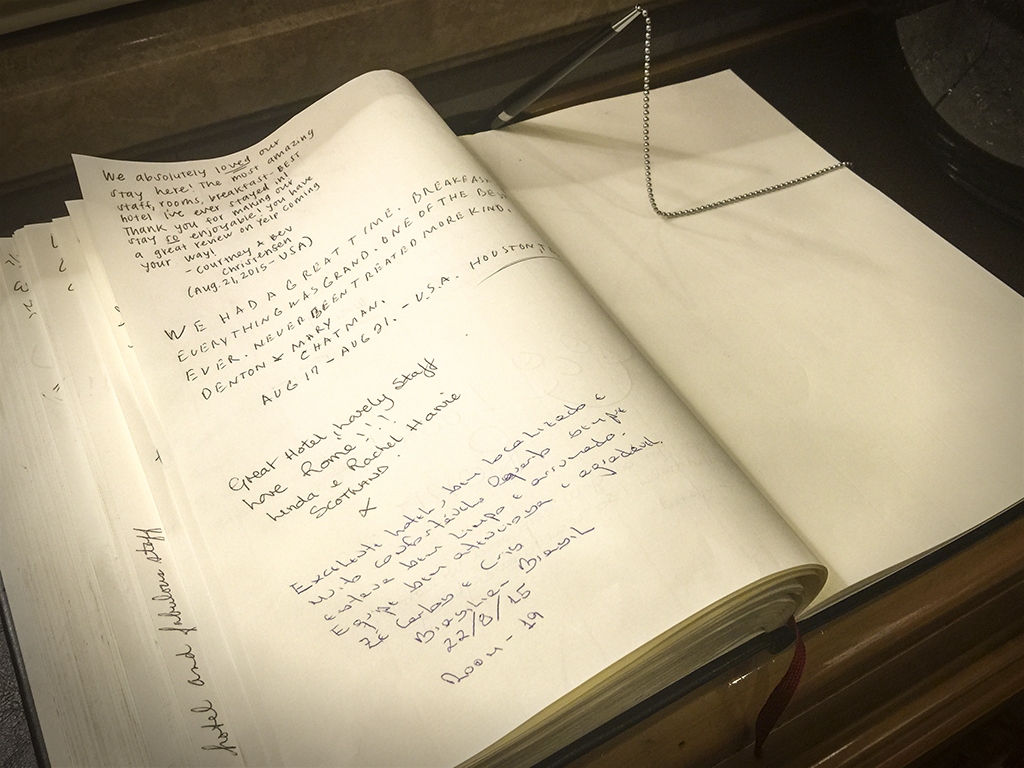 We absolutely loved our
stay here! The most amazing
staff, rooms, breakfast - BEST
hotel I've ever stayed in!
Thank you for making our
stay so enjoyable, you have
a great review on Yelp coming
your way!
- Courtney & Bev
Christensen
(Aug. 21, 2015 - USA)
WE HAD A GREAT TIME. BREAKFAS
EVERYTHING WAS GRAND. ONE OF THE BES
EVER. NEVER BEEN TREATED MORE KIND.
DENTON & MARY
CHATMAN.
AUG 17 - AUG 21. - U.S.A. HOUSTON T
Great Hotel, Lovely Staff
love Rome!!!
Linda & Rachel Harvie
SCOTLAND.
X
Excelente hotel, bem localizado e
muito confortável. Quarto sempre
estava bem limpo e arrumado.
Equipe bem atenciosa e agradável.
Zé Carlos e Cris
Brasília - Brasil
22/8/15
Room - 19
hotel and fabulous staff